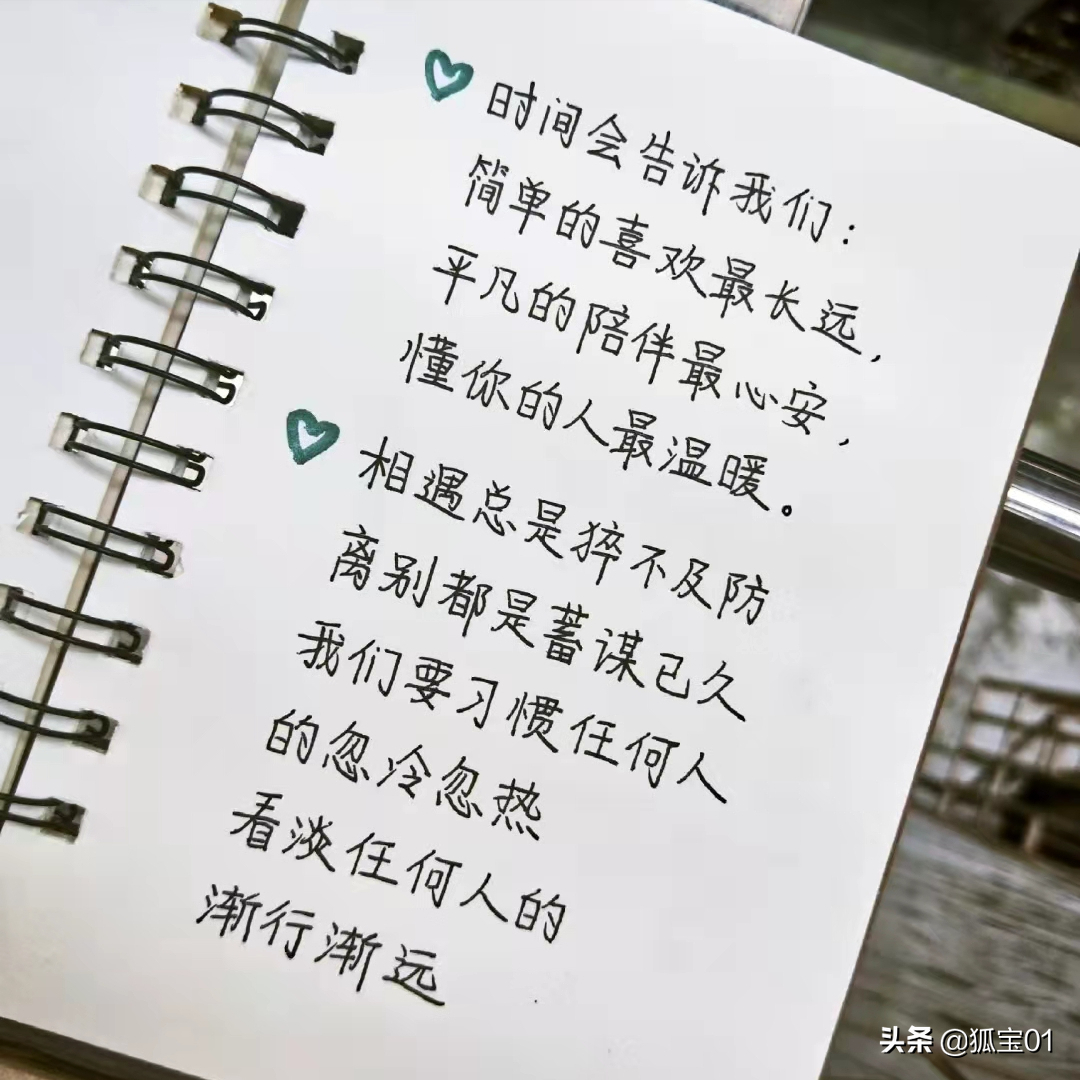 时间会告诉我们：
简单的喜欢最长远，
平凡的陪伴最心安，
懂你的人最温暖。
相遇总是猝不及防
离别都是蓄谋已久
我们要习惯任何人
的忽冷忽热
看淡任何人的
渐行渐远
头条 @狐宝01